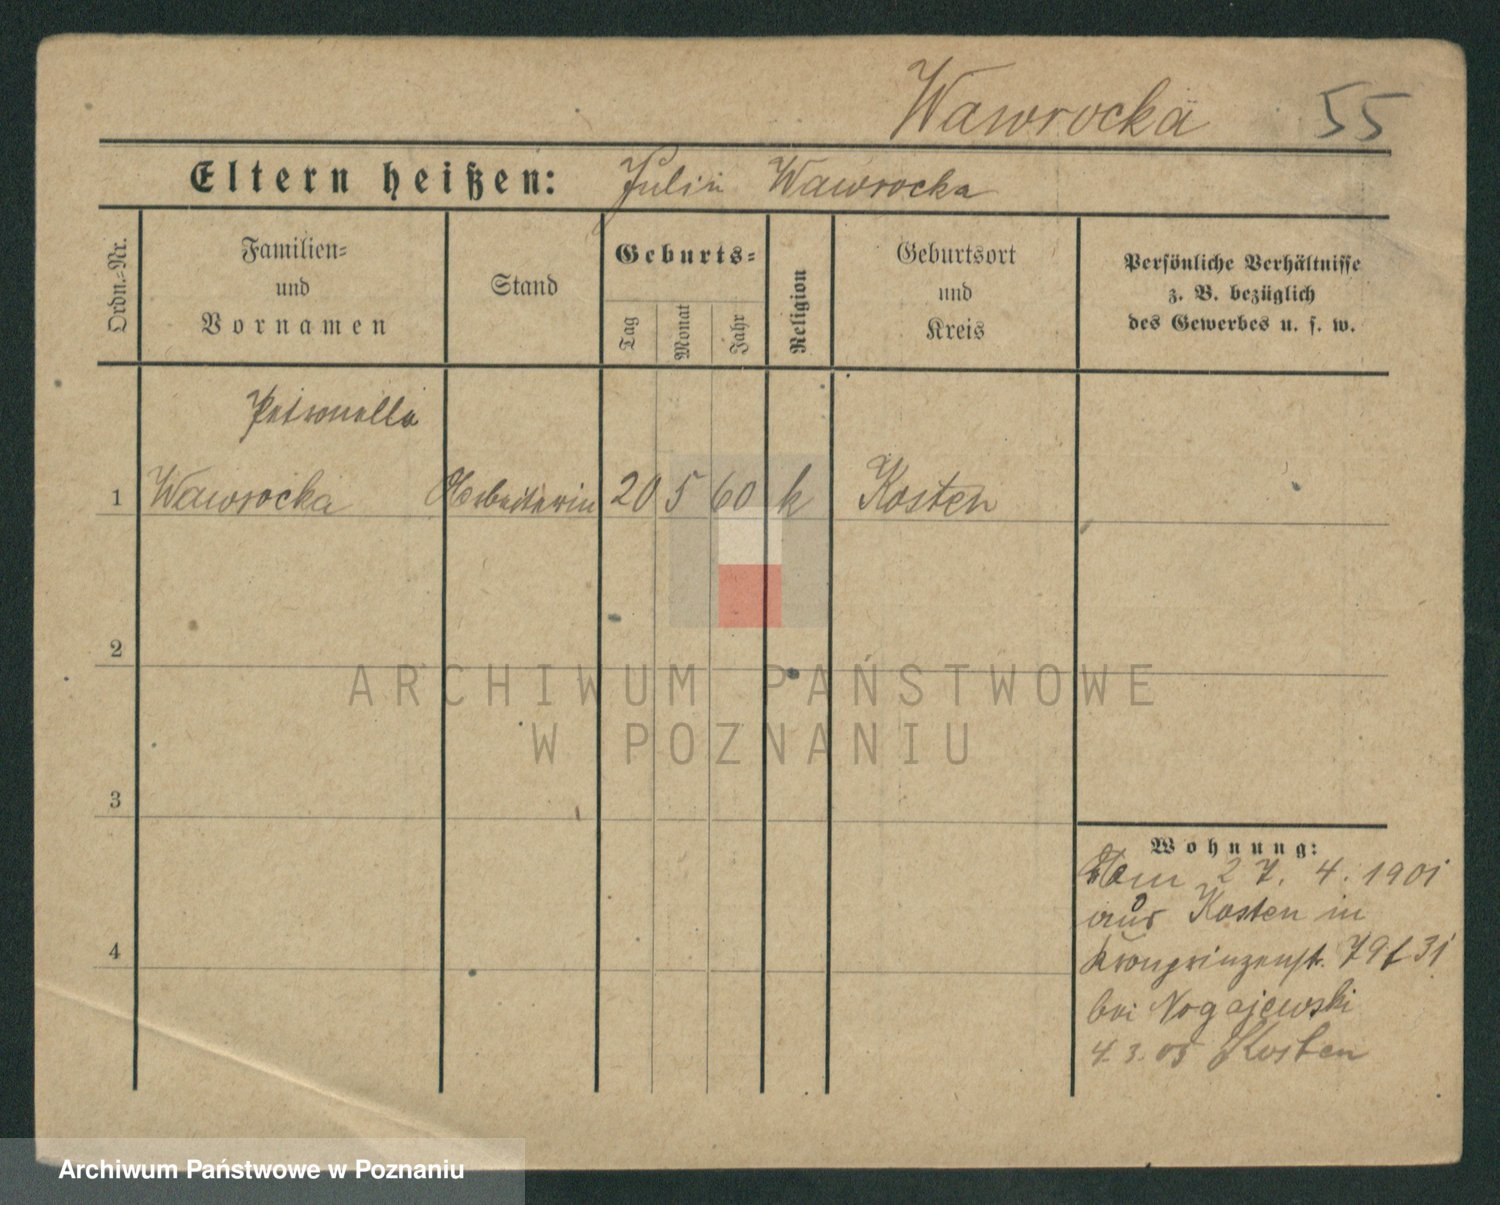 Wawrocka 55
Eltern heißen: Julie Wawrocka
Ordn.-Nr.
Familien=
und
Vornamen
Stand
Geburts=
Tag
Monat
Jahr
Religion
Geburtsort
und
Kreis
Persönliche Verhältnisse
z. B. bezüglich
des Gewerbes u. s. w.
Petronella
1 Wawrocka Arbeiterin 20 5 60 k Kosten
2
3
4
Wohnung:
Am 27. 4. 1901
aus Kosten in
Kronprinzenstr. 79
bei Nogajewski
4.3.05 Kosten
ARCHIWUM PAŃSTWOWE
W POZNANIU
Archiwum Państwowe w Poznaniu